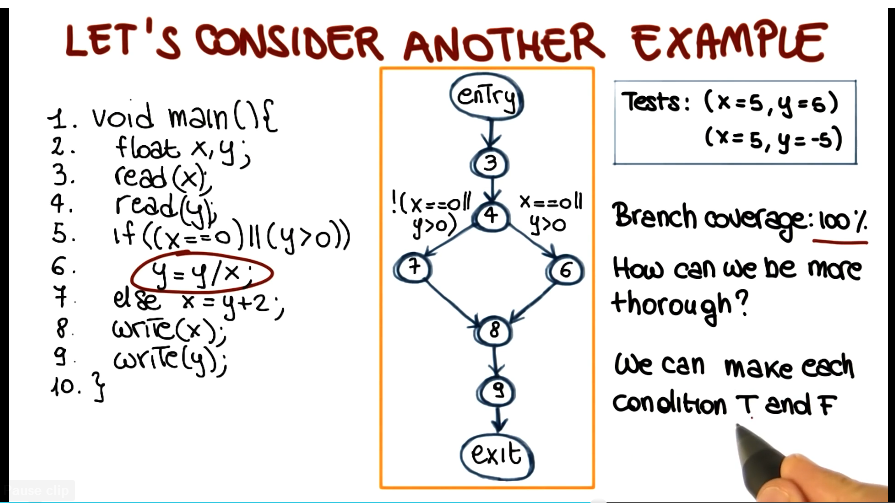 LET'S CONSIDER ANOTHER EXAMPLE
1. void main(){
2. float x,y;
3. read(x);
4. read(y);
5. if((x==0)||(y>0))
6. y=y/x;
7. else x=y+2;
8. write(x);
9. write(y);
10. }
entry
3
!(x==0||
y>0)
4
x==0||
y>0
7
6
8
9
exit
Tests: (x=5,y=6)
(x=5,y=-5)
Branch coverage: 100%
How can we be more
thorough?
We can make each
condition T and F
ause clip